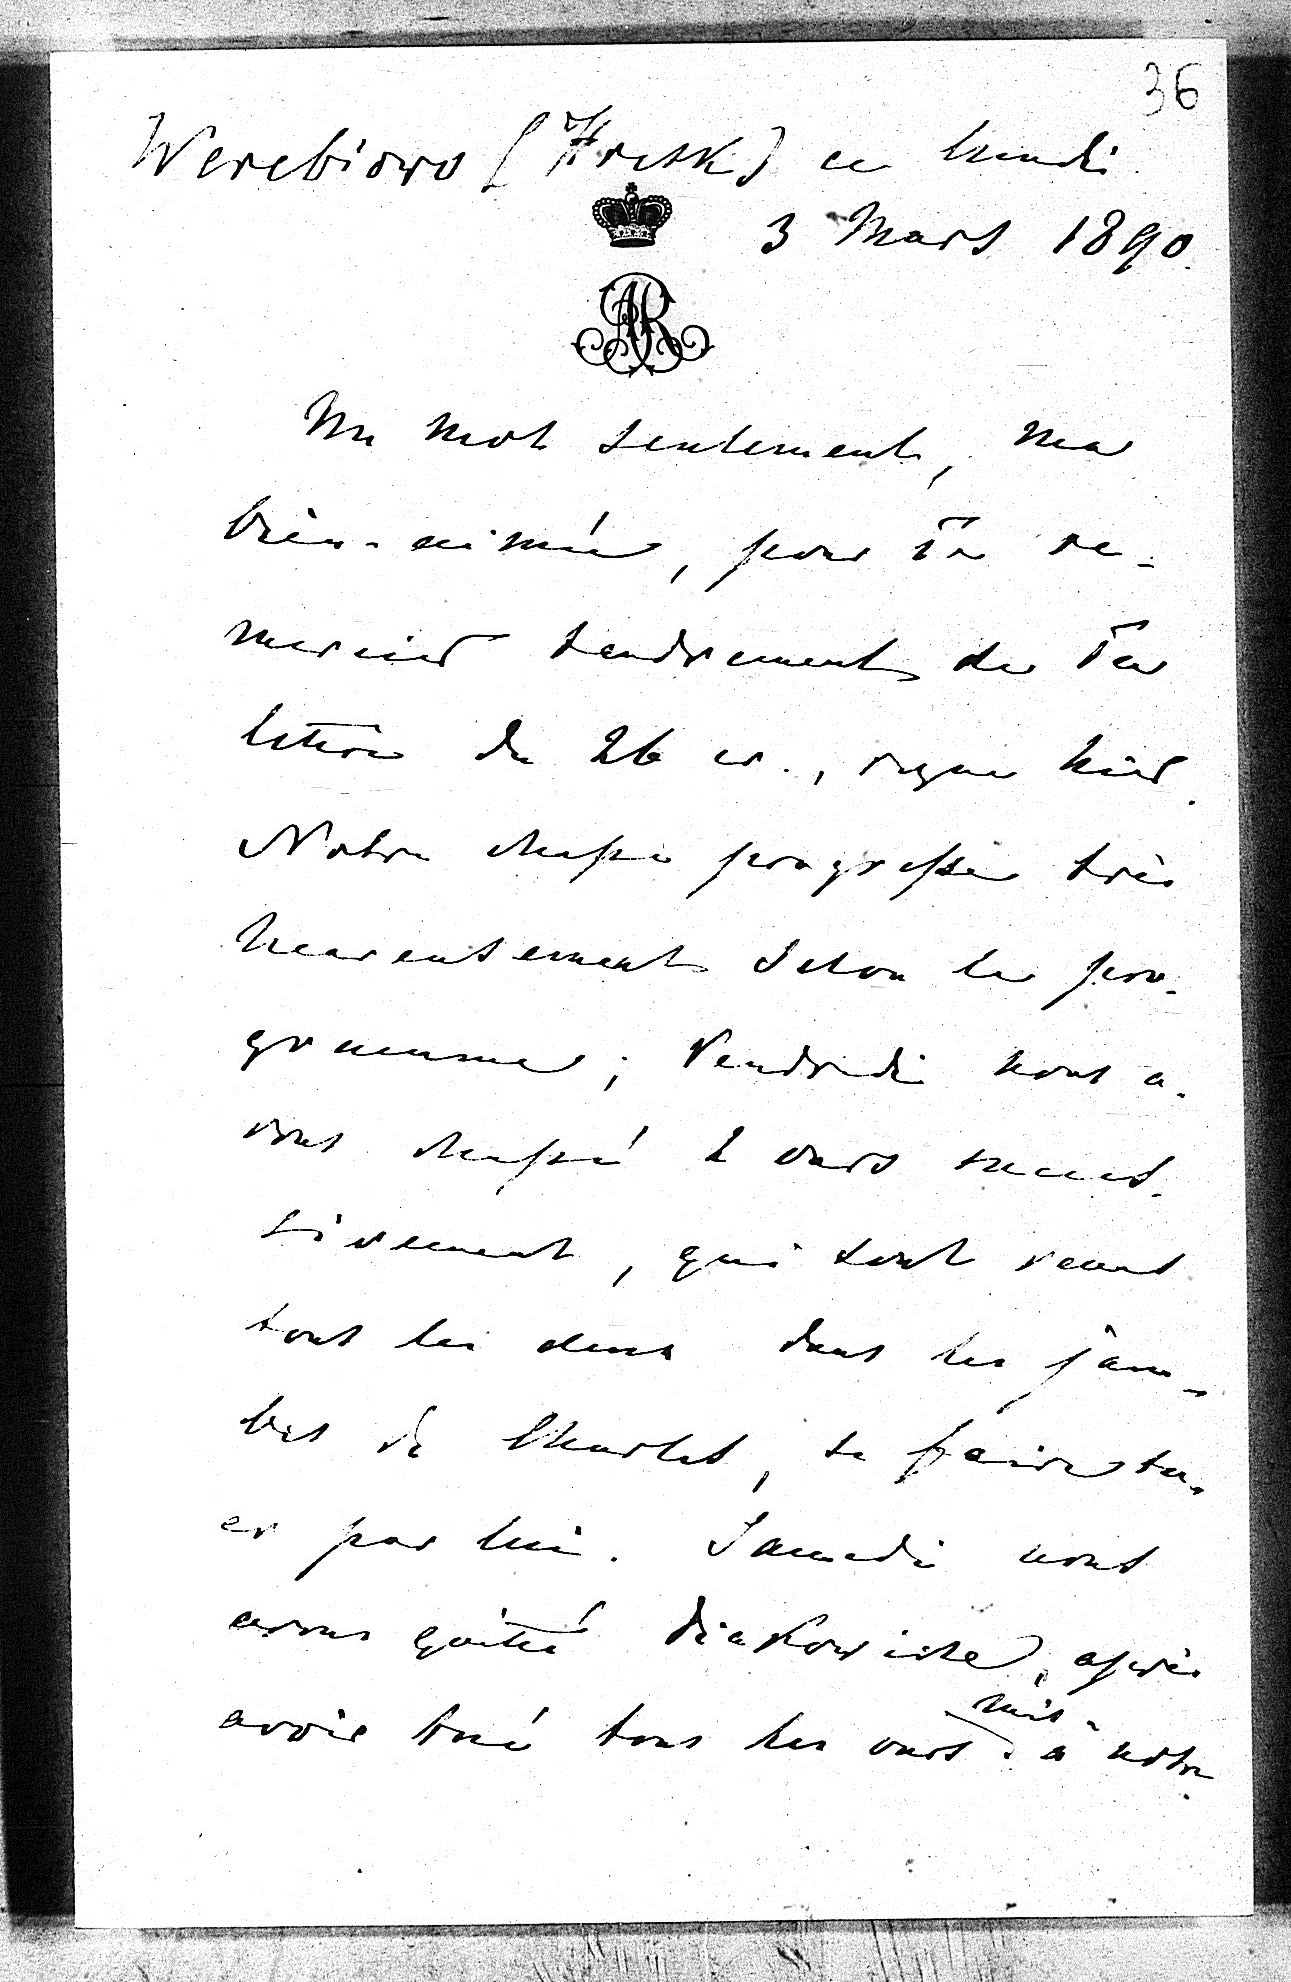 36
Werebiowo [Hresk] ce lundi
3 Mars 1890.
AR
Un mot seulement, ma
bien-aimée, pour Te re-
mercier tendrement de Ta
lettre du 26 cr., reçue hier.
Notre chasse progresse très
heureusement selon le pro-
gramme; Vendredi nous a-
vons chassé 2 ours succes-
sivement, qui sont venus
tous les deux dans les jam-
bes de Charles, se faire tu-
er par lui. Samedi nous
avons quitté Diakowiche, après
avoir tué tous les ours mis à notre